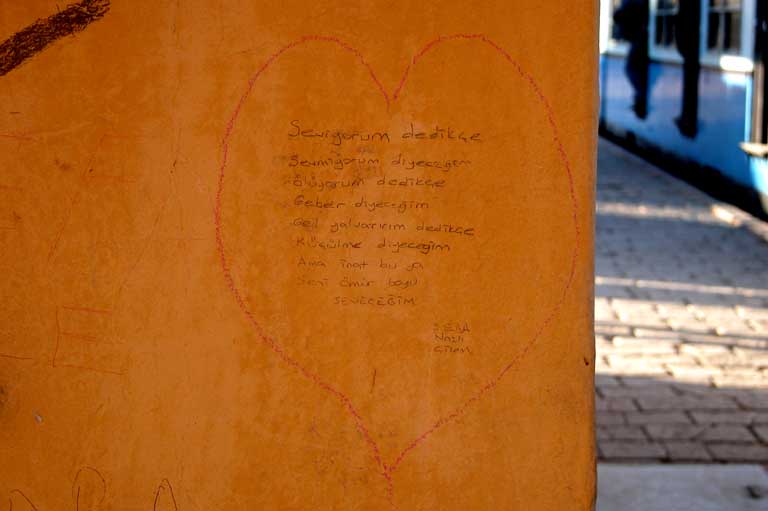 Seviyorum dedikçe
Sevmiyorum diyeceğim
Ölüyorum dedikçe
Geber diyeceğim
Gel yalvarırım dedikçe
Küçülme diyeceğim
Ama inat bu ya
Seni ömür boyu
SEVECEĞİM
SEDA
Nazlı